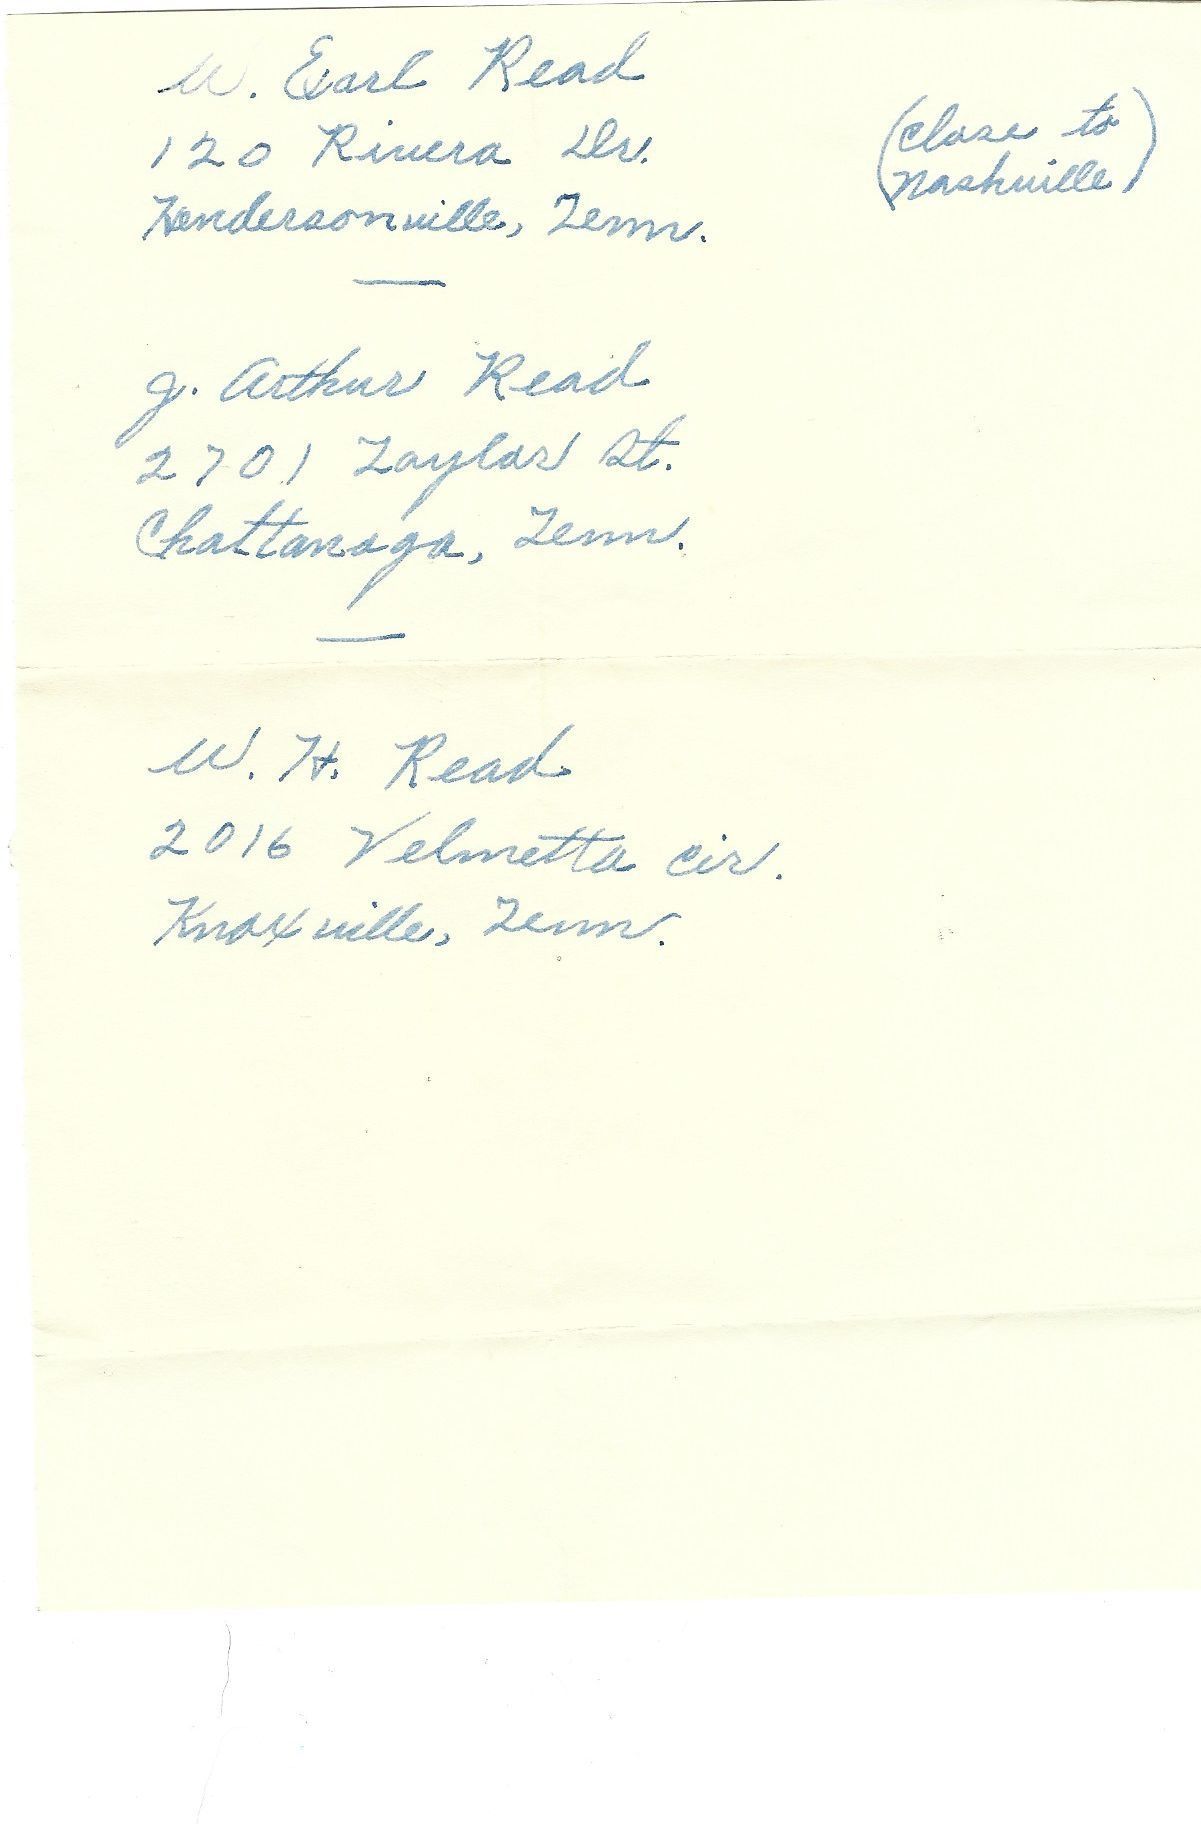 W. Earl Read
120 Rivera Dr.
(close to
Nashville)
Hendersonville, Tenn.
J. Arthur Read
2701 Taylor St.
Chattanoga, Tenn.
W. H. Read
2016 Velmetta Cir.
Knoxville, Tenn.